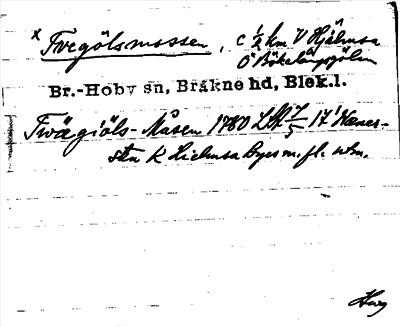 x Tvegölsmossen, c ½ km V Hjälmsa
Ö Bökelångsgölen
Br.-Hoby sn, Bräkne hd, Blek.l.
Twägiöls-Måsen 1780 LSA 7/5 17' Næmer-
sten K Hielmsa Byes m.fl. wm.